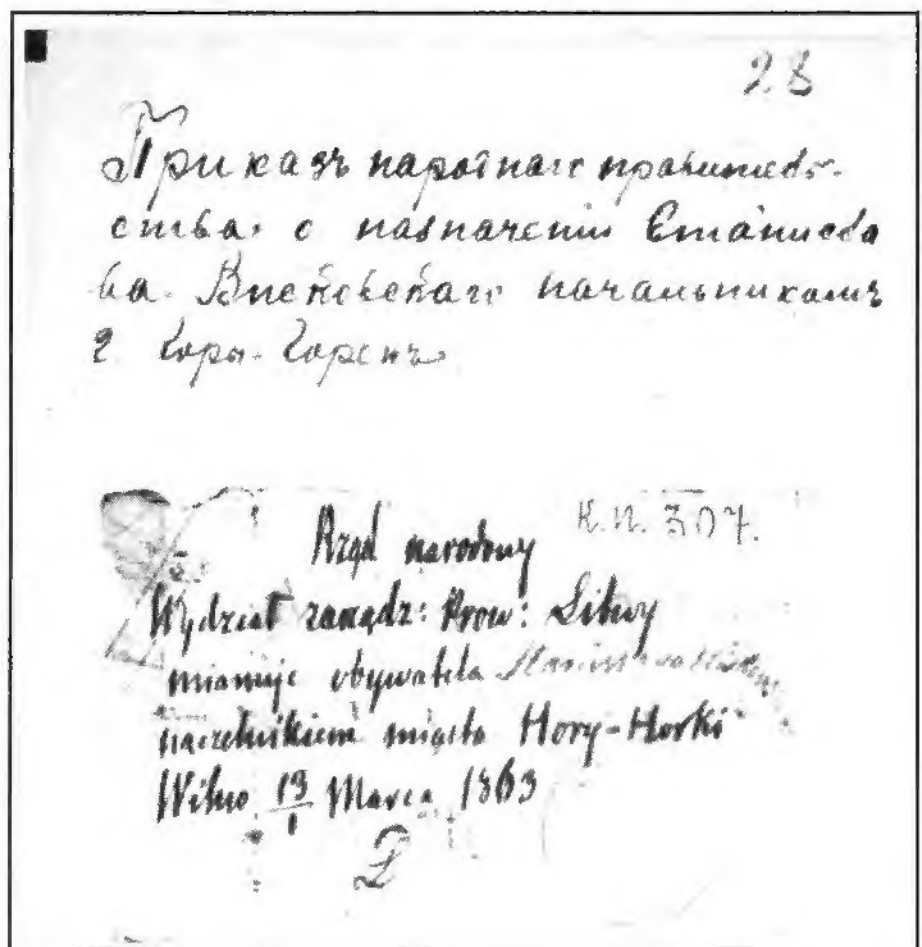 28
Приказъ народнаго правитель-
ства о назначеніи Станисла
ва Висковскаго начальникомъ
г. Горы-Горекъ
K.N. 307.
Rząd narodowy
Wydział zarządz: Prow: Litwy
mianuje obywatela
naczelnikiem miasta Hory-Horki
Wilno 13/1 Marca 1863